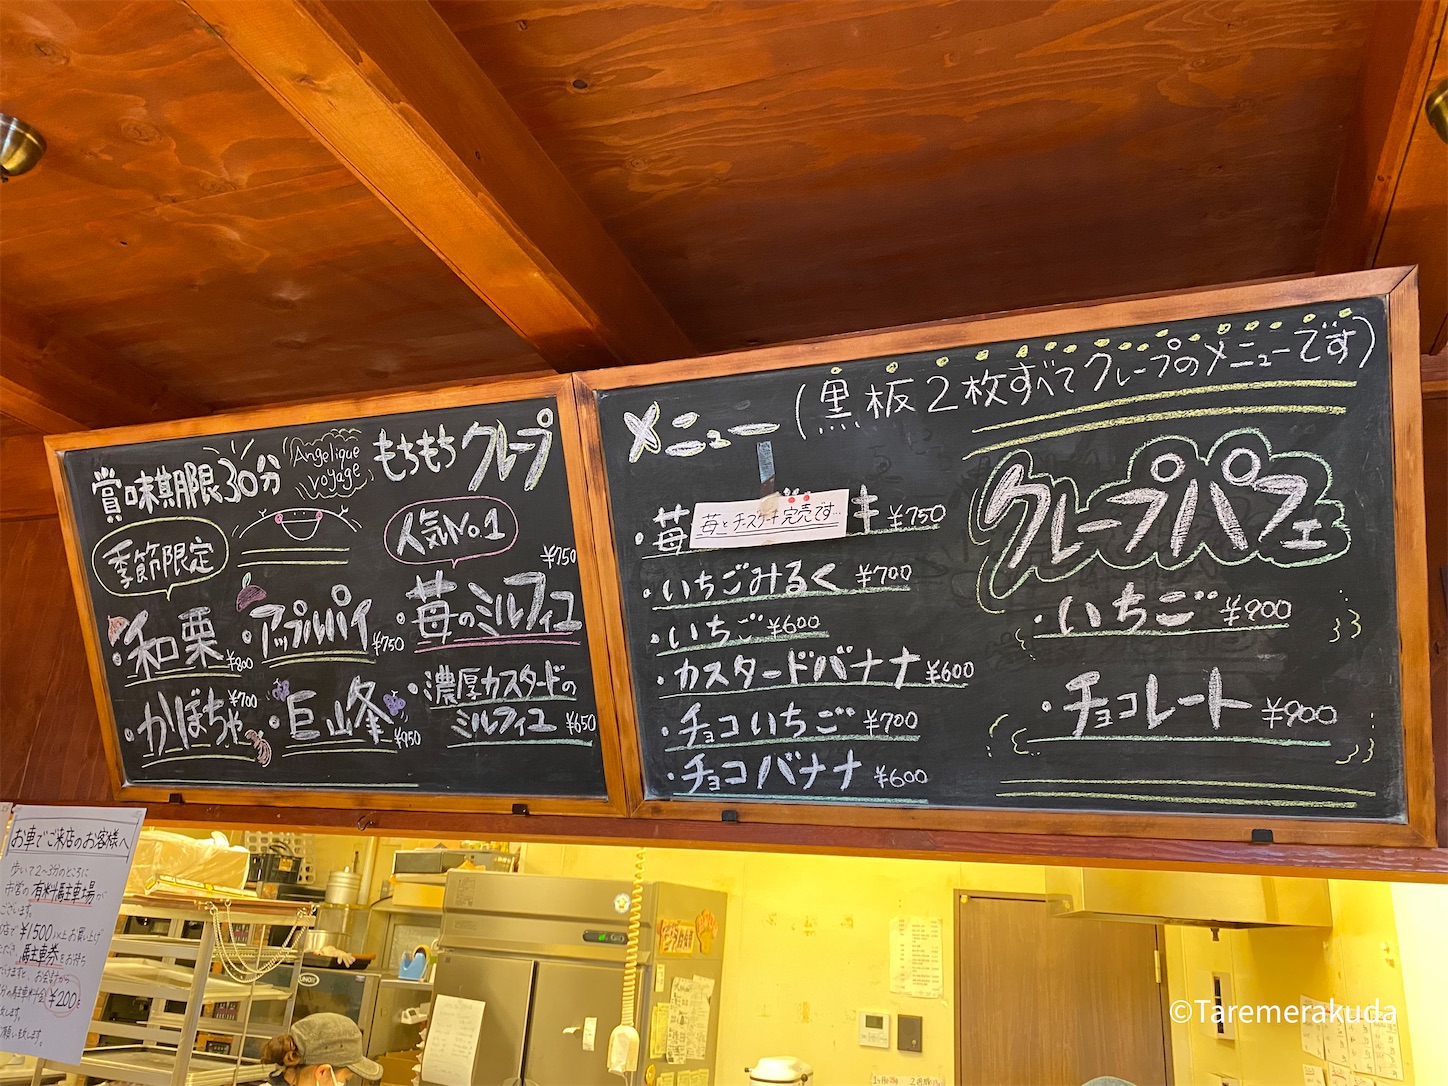 賞味期限30分
Angelique
voyage
もちもちクレープ
季節限定
人気No.1
・和栗 ¥800
・アップルパイ ¥750
・苺のミルフィユ ¥750
・かぼちゃ ¥700
・巨峰 ¥950
・濃厚カスタードの
ミルフィユ ¥650
メニュー (黒板2枚すべてクレープのメニューです)
・苺
苺とチーズケーキ完売です。
キ ¥750
・いちごみるく ¥700
・いちご ¥600
・カスタードバナナ ¥600
・チョコいちご ¥700
・チョコバナナ ¥600
クレープパフェ
・いちご ¥900
・チョコレート ¥900
お車でご来店のお客様へ
歩いて2~3分のところに
市営の有料駐車場が
ございます。
¥1500以上お買い上げ
駐車券をお持ち
お会計から
¥200を
©Taremerakuda